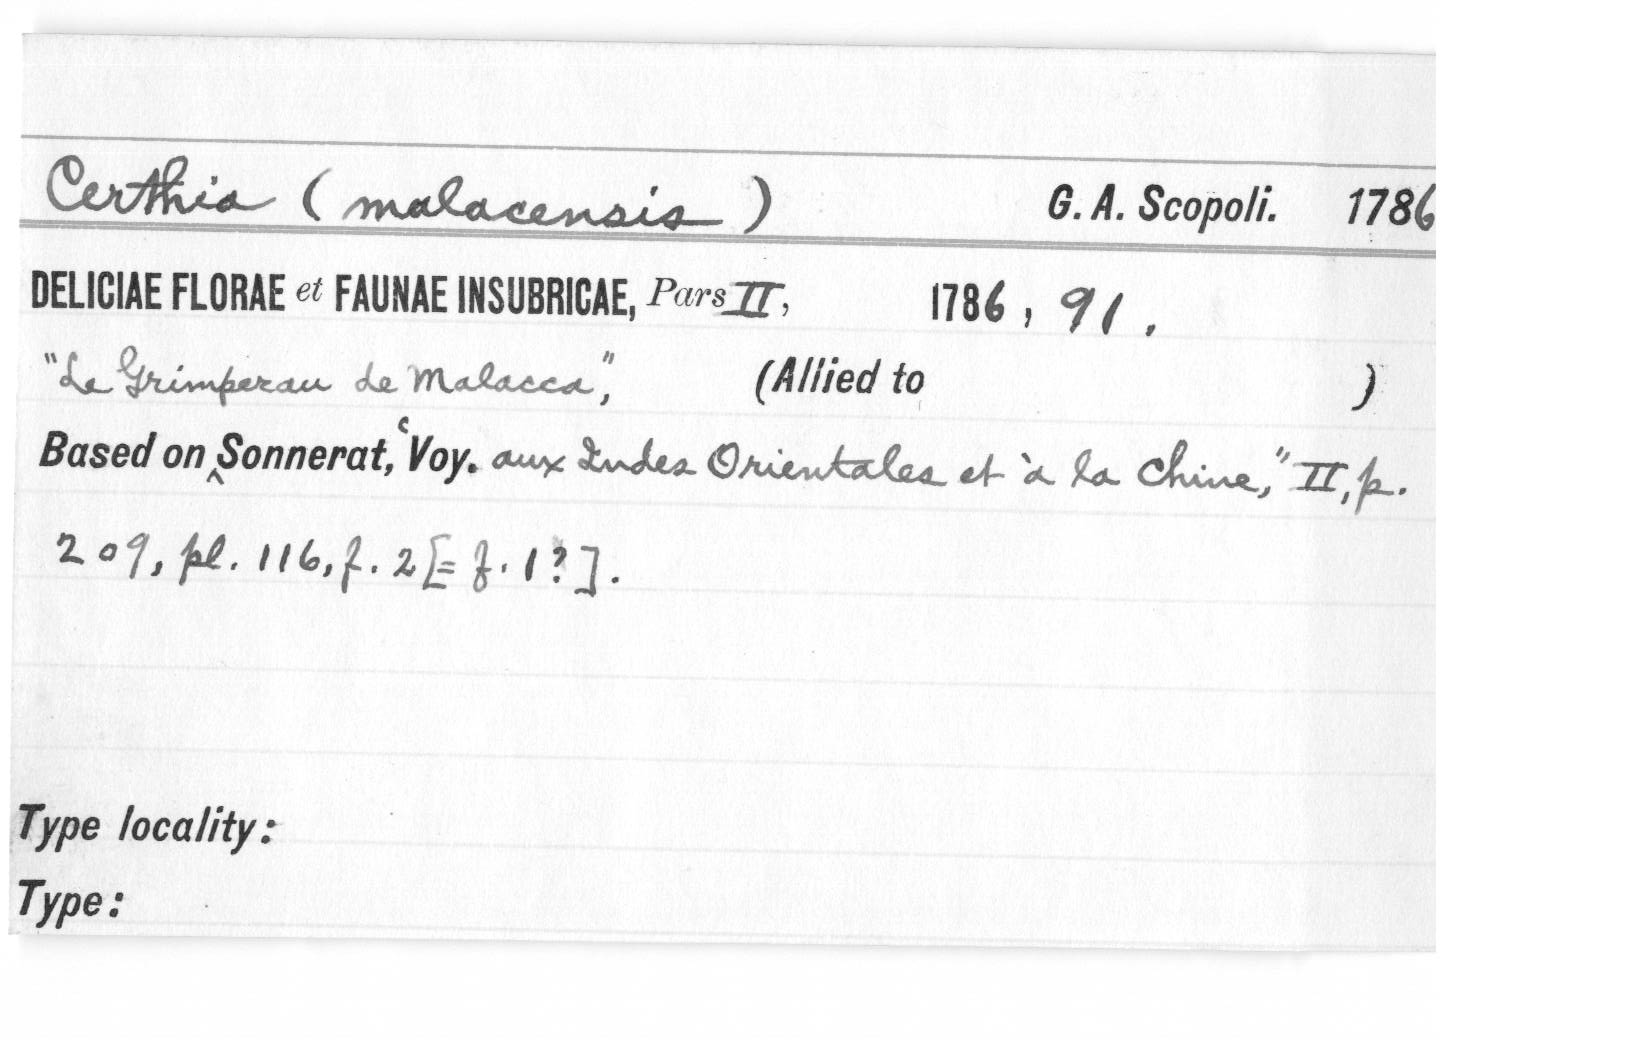 Certhia (malacensis) G. A. Scopoli. 1786
DELICIAE FLORAE et FAUNAE INSUBRICAE, Pars II, 1786, 91.
"Le Grimpereau de Malacca", (Allied to )
Based on ‸ Sonnerat, ‘Voy. aux Indes Orientales et à la Chine," II, p.
209, pl. 116, f. 2 [= f. 1?].
Type locality:
Type: